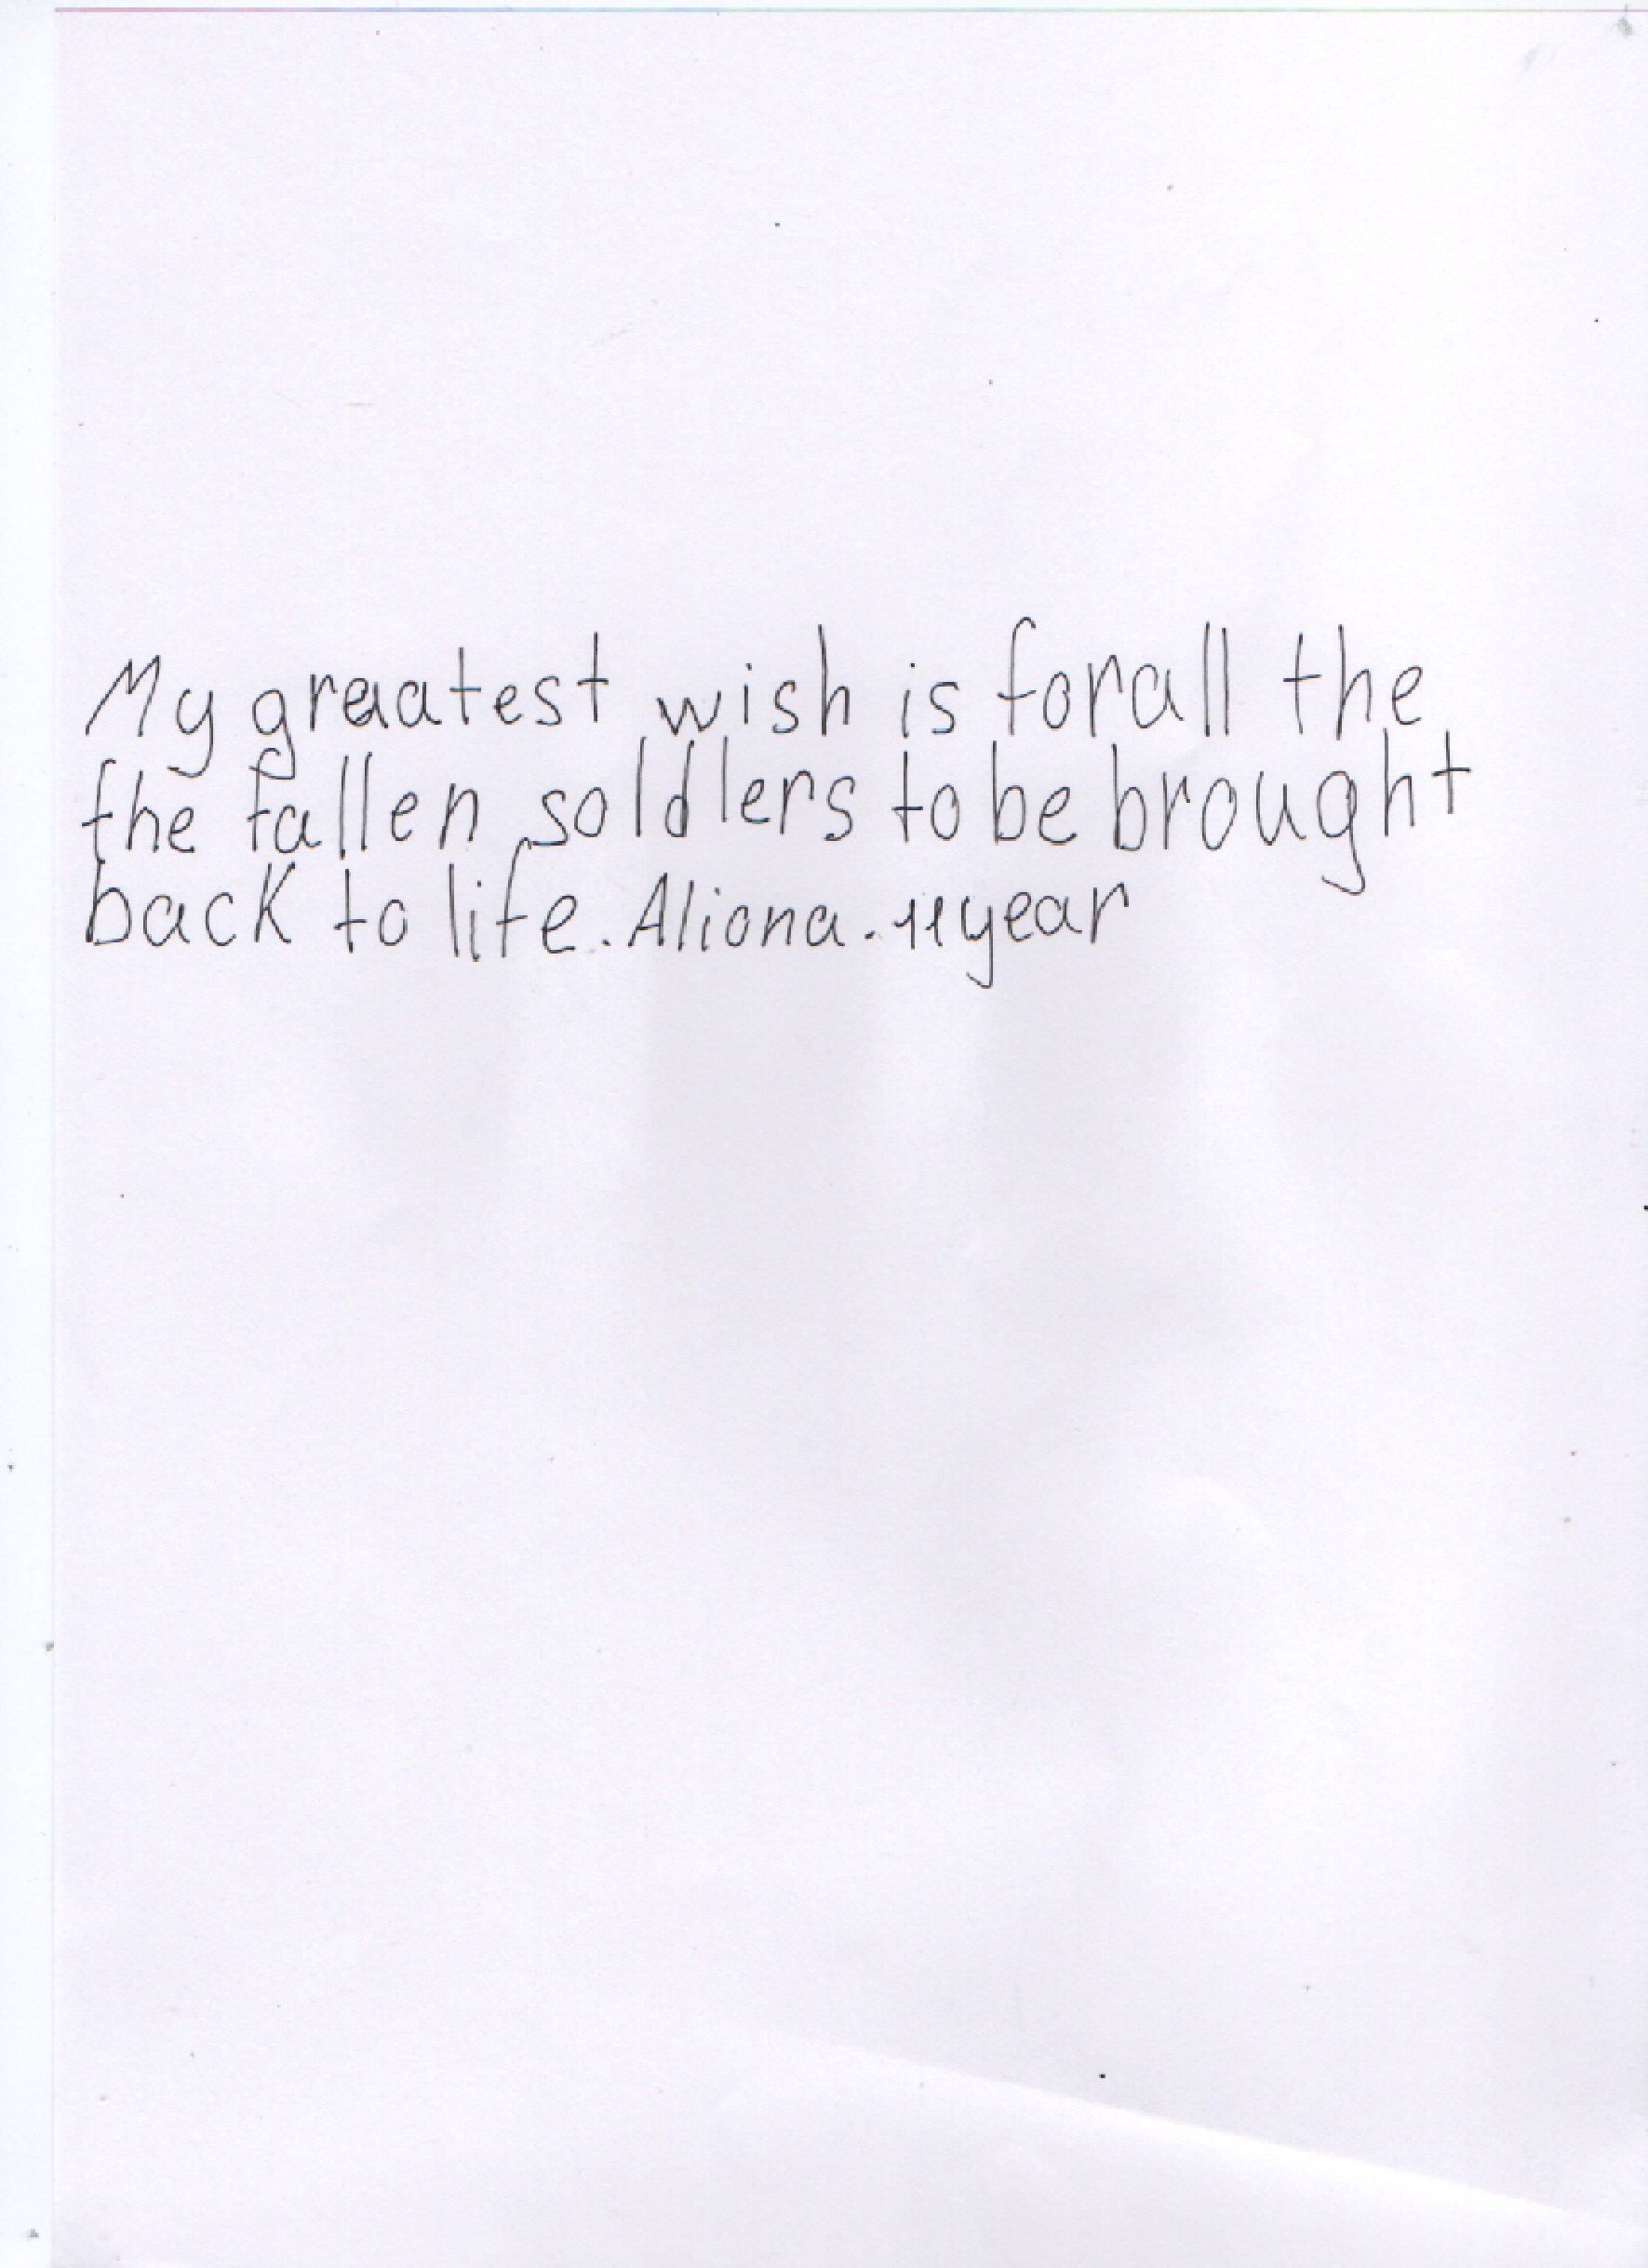 My greatest wish is for all the
the fallen soldlers to be brought
back to life. Aliona. 11 year